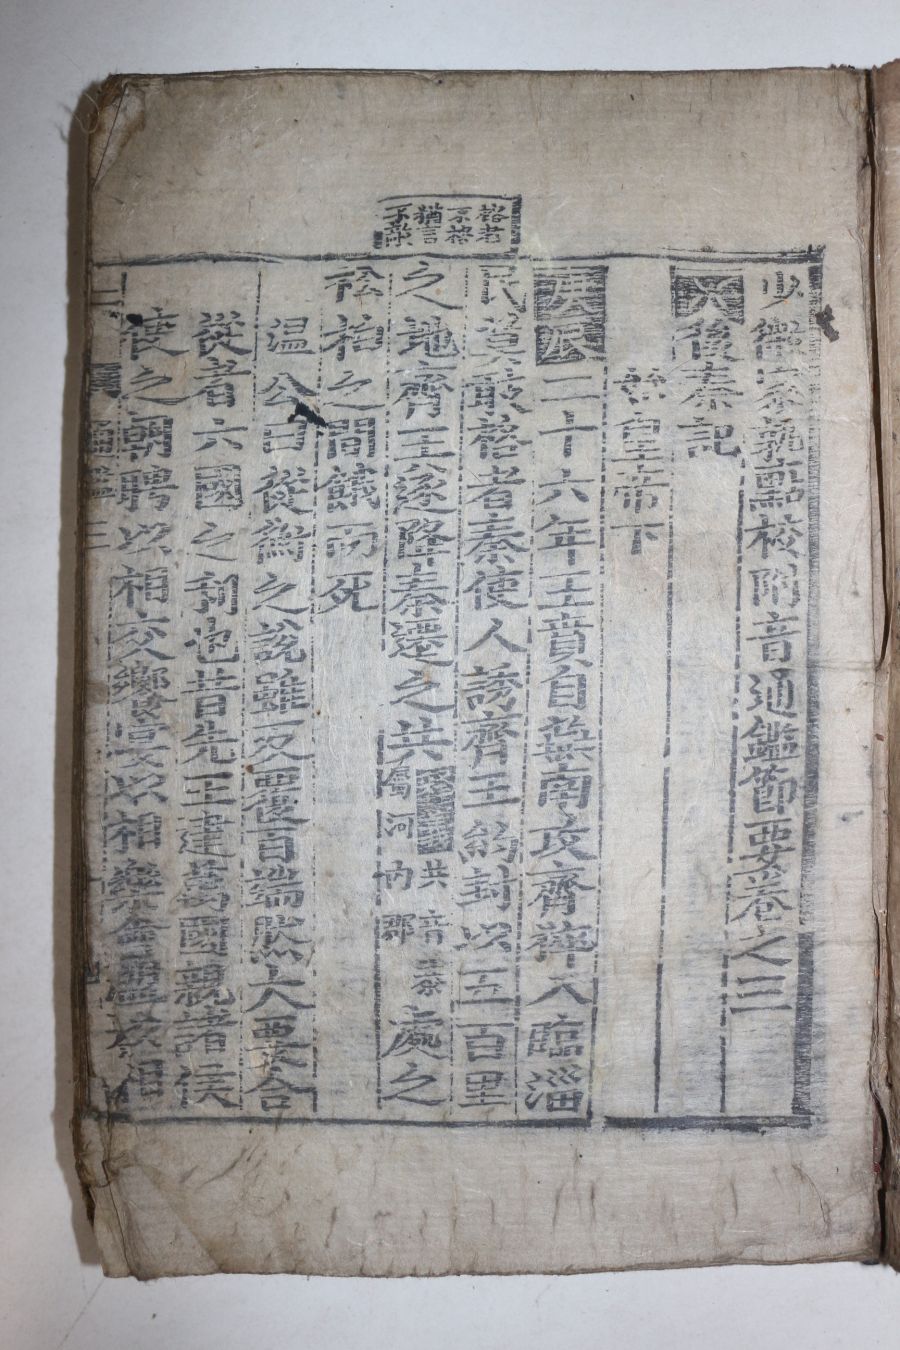 少微家塾點校附音通鑑節要卷之三
後秦記
始皇帝下
庚辰二十六年王賁自燕南攻齊猝入臨淄
民莫敢格者秦使人誘齊王約封以五百里
之地齊王遂降秦遷之共 共音恭 屬河內郡 處之
松柏之間餓而死
温公曰從衡之說雖反覆百端然大要合
從者六國之利也昔先王建萬國親諸侯
使之朝聘以相交饗宴以相樂會盟以相
格者
不格
猶言